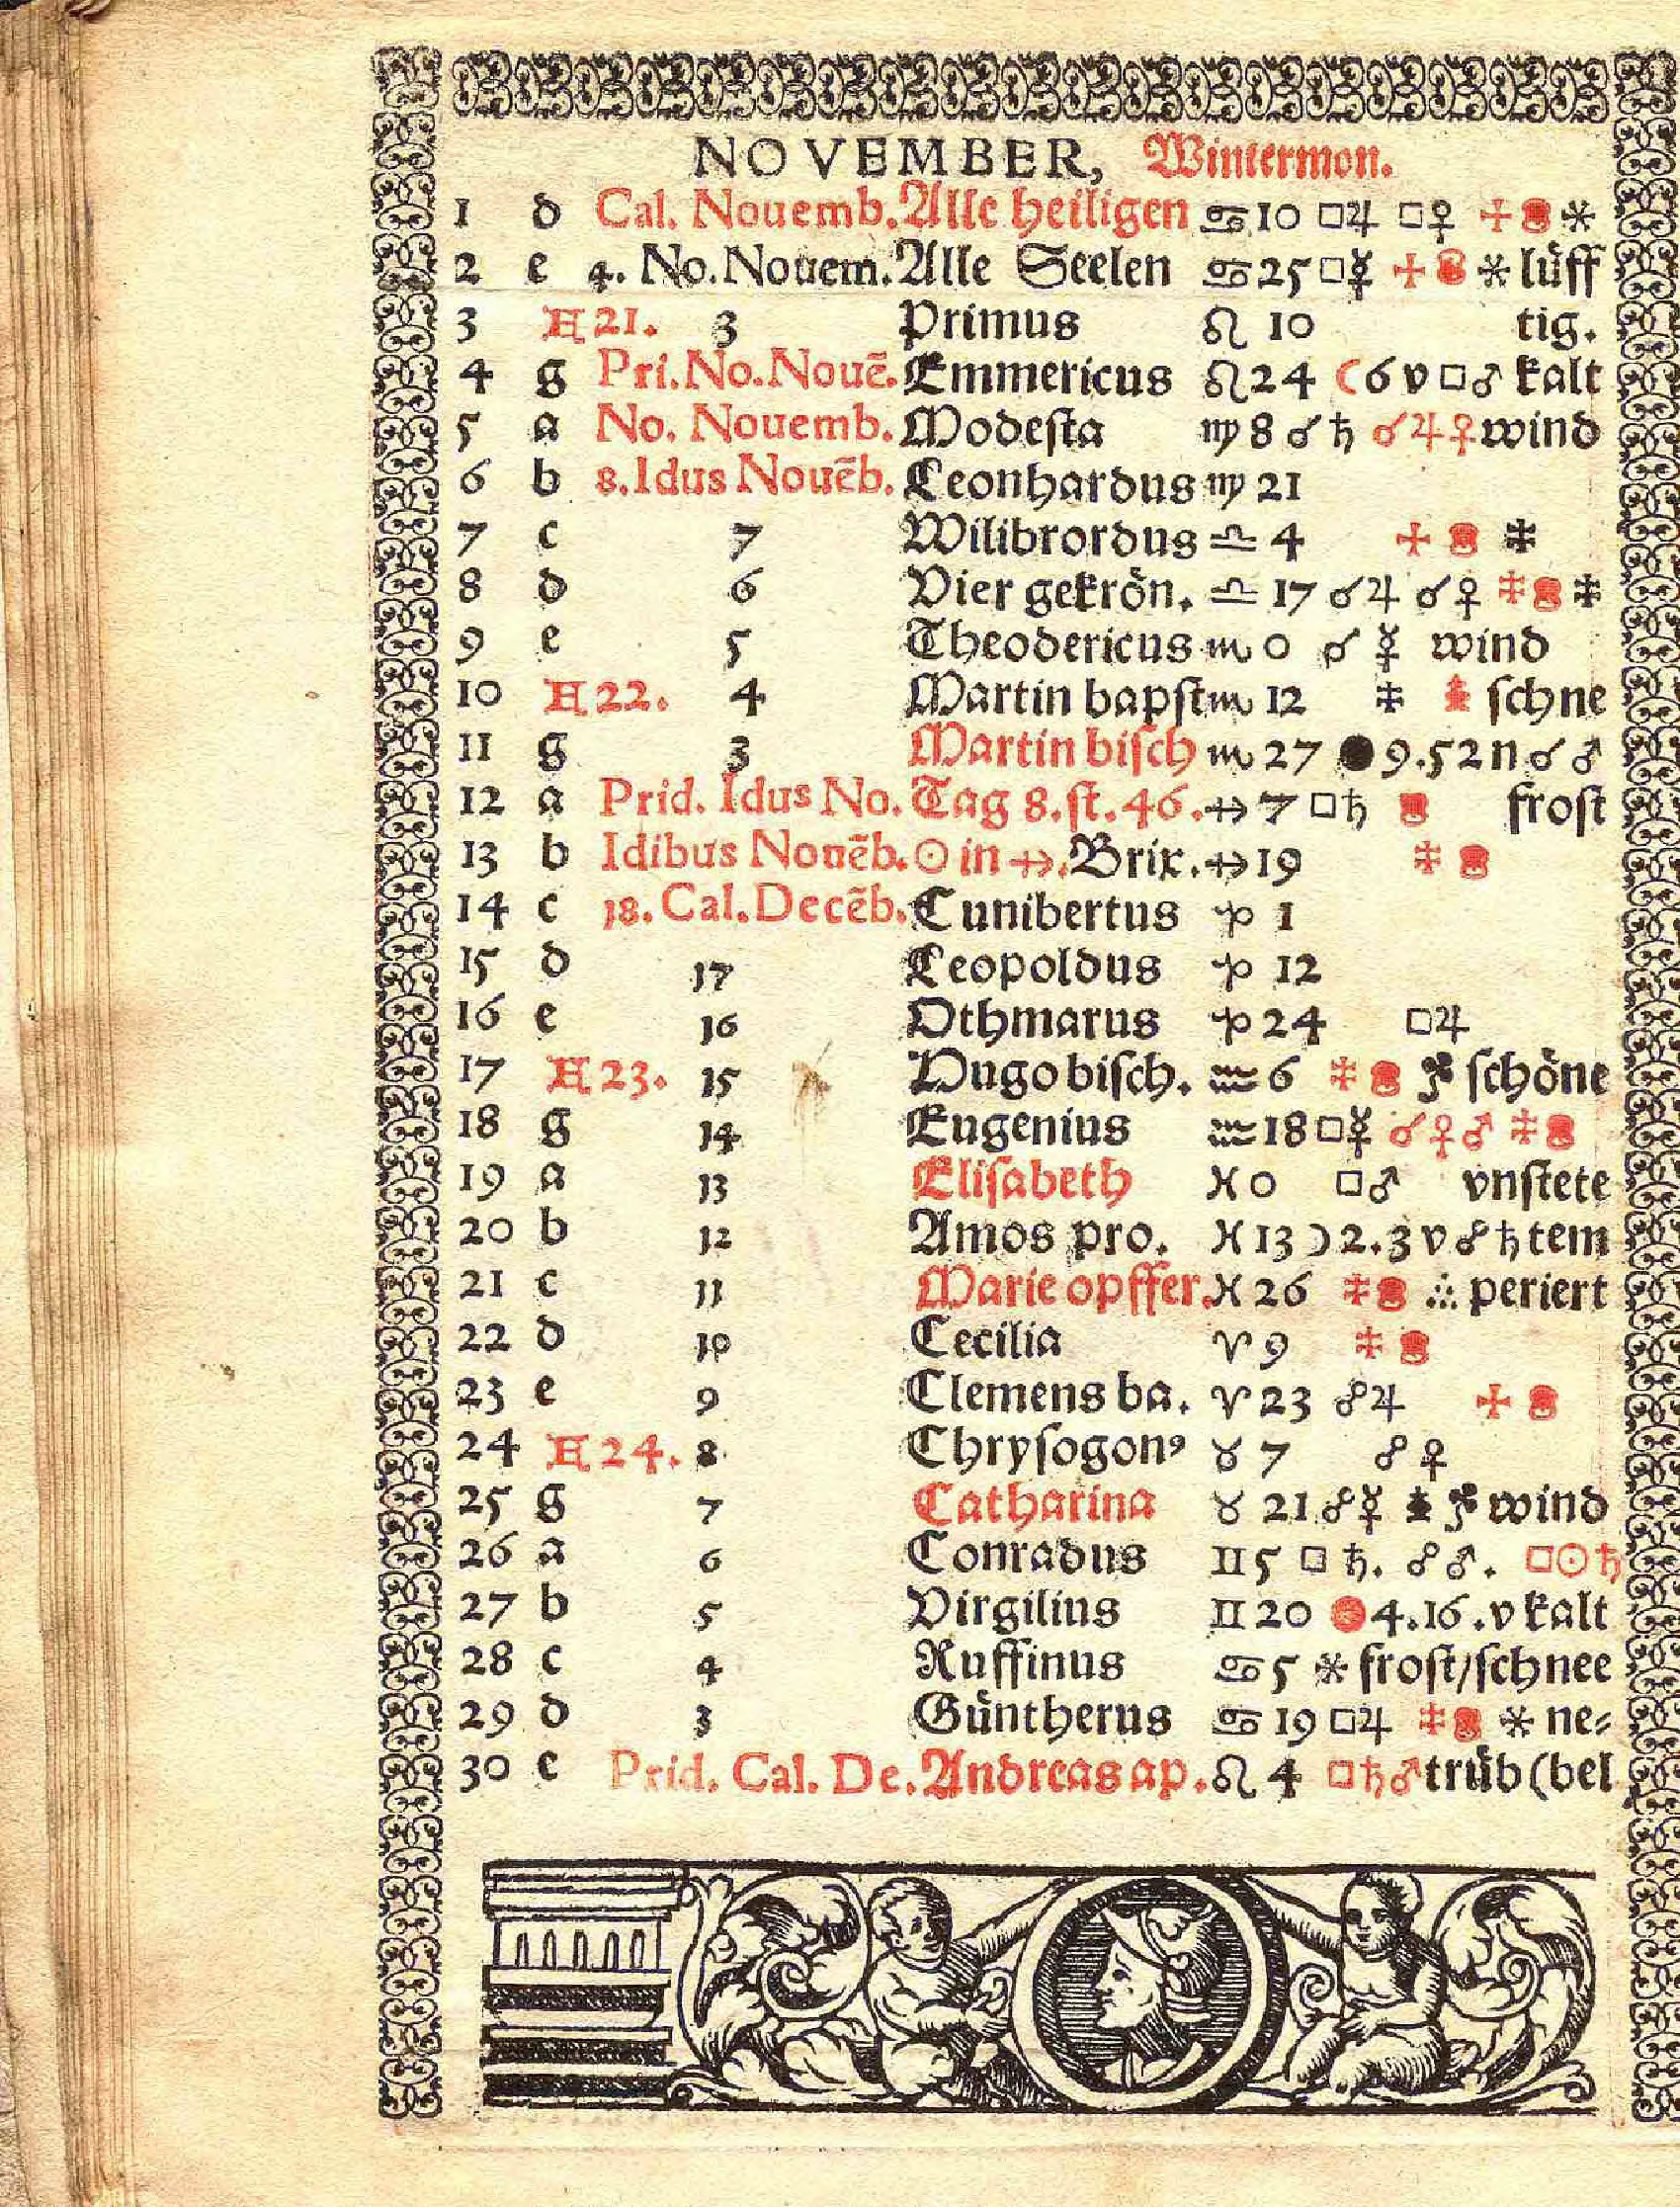 NOVEMBER, Wintermon.
1 d Cal. Nouemb. Alle heiligen ♋ 10 □♃ □♀ ✢ *
2 e 4. No. Nouem. Alle Seelen ♋ 25 □☿ ✢ * lüff
3 H 21. 3 Primus ♌ 10 tig.
4 g Pri. No. Nouē. Emmericus ♌ 24 ☾ 6 v □♂ kalt
5 a No. Nouemb. Modeſta ♍ 8 ☌ ♄ ☌ ♃♀ wind
6 b 8. Idus Nouēb. Leonhardus ♍ 21
7 c 7 Wilibrordus ♎ 4 ✢ ‡
8 d 6 Vier gekrön. ♎ 17 ☌♃ ☌♀ ‡ ‡
9 e 5 Theodericus ♏ 0 ☌ ☿ wind
10 H 22. 4 Martin bapſt ♏ 12 ‡ ſchne
11 g 3 Martin biſch ♏ 27 ● 9.52 n ☌ ♂
12 a Prid. Idus No. Tag 8. ſt. 46. ♐ 7 □♄ froſt
13 b Idibus Nouēb. ☉ in ♐. Brix. ♐ 19 ‡
14 c 18. Cal. Decēb. Cunibertus ♑ 1
15 d 17 Leopoldus ♑ 12
16 e 16 Othmarus ♑ 24 □♃
17 H 23. 15 Hugo biſch. ♒ 6 ‡ ſchöne
18 g 14 Eugenius ♒ 18 □☿ ☌♀♂ ‡
19 a 13 Eliſabeth ♓ 0 □♂ vnſtete
20 b 12 Amos pro. ♓ 13 ☽ 2.3 v ☍ ♄ tem
21 c 11 Marie opffer. ♓ 26 ‡ ∴ periert
22 d 10 Cecilia ♈ 9 ‡
23 e 9 Clemens ba. ♈ 23 ☍♃ ✢
24 H 24. 8 Chryſogonꝰ ♉ 7 ☍ ♀
25 g 7 Catharina ♉ 21 ☍☿ wind
26 a 6 Conradus ♊ 5 □ ♄. ☍♂. □☉♄
27 b 5 Virgilius ♊ 20 ● 4.16. v kalt
28 c 4 Ruffinus ♋ 5 * froſt/ſchnee
29 d 3 Güntherus ♋ 19 □♃ ‡ * ne⸗
30 e Prid. Cal. De. Andreas ap. ♌ 4 □♄♂ trüb (bel